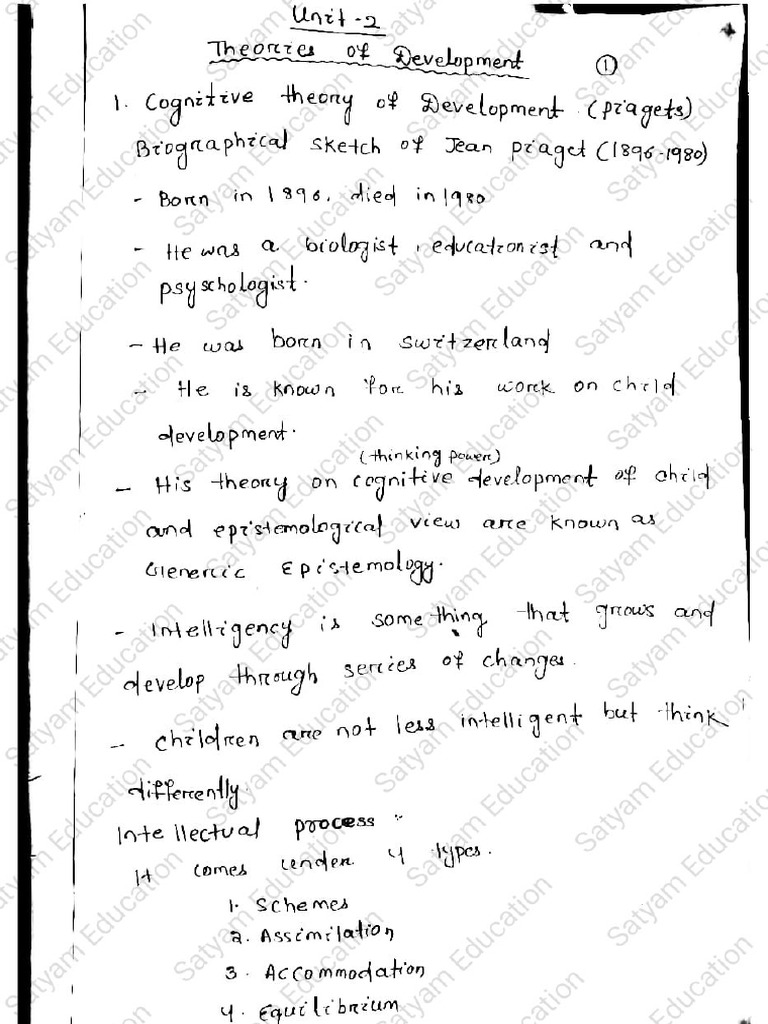 Unit-2
Theories of Development ①
1. Cognitive theory of Development (piagets)
Biographical sketch of Jean piaget (1896-1980)
- Born in 1896, died in 1980
- He was a biologist, educationist and
psyschologist.
- He was born in switzerland
- He is known for his work on child
development.
(thinking power)
- His theory on cognitive development of child
and epistemological view are known as
Generic Epistemology.
- Intelligency is something that grows and
develop through series of changes.
- children are not less intelligent but think
differently
Intellectual process :-
It comes under 4 types.
1. Schemes
2. Assimilation
3. Accommodation
4. Equilibrium
Satyam Education